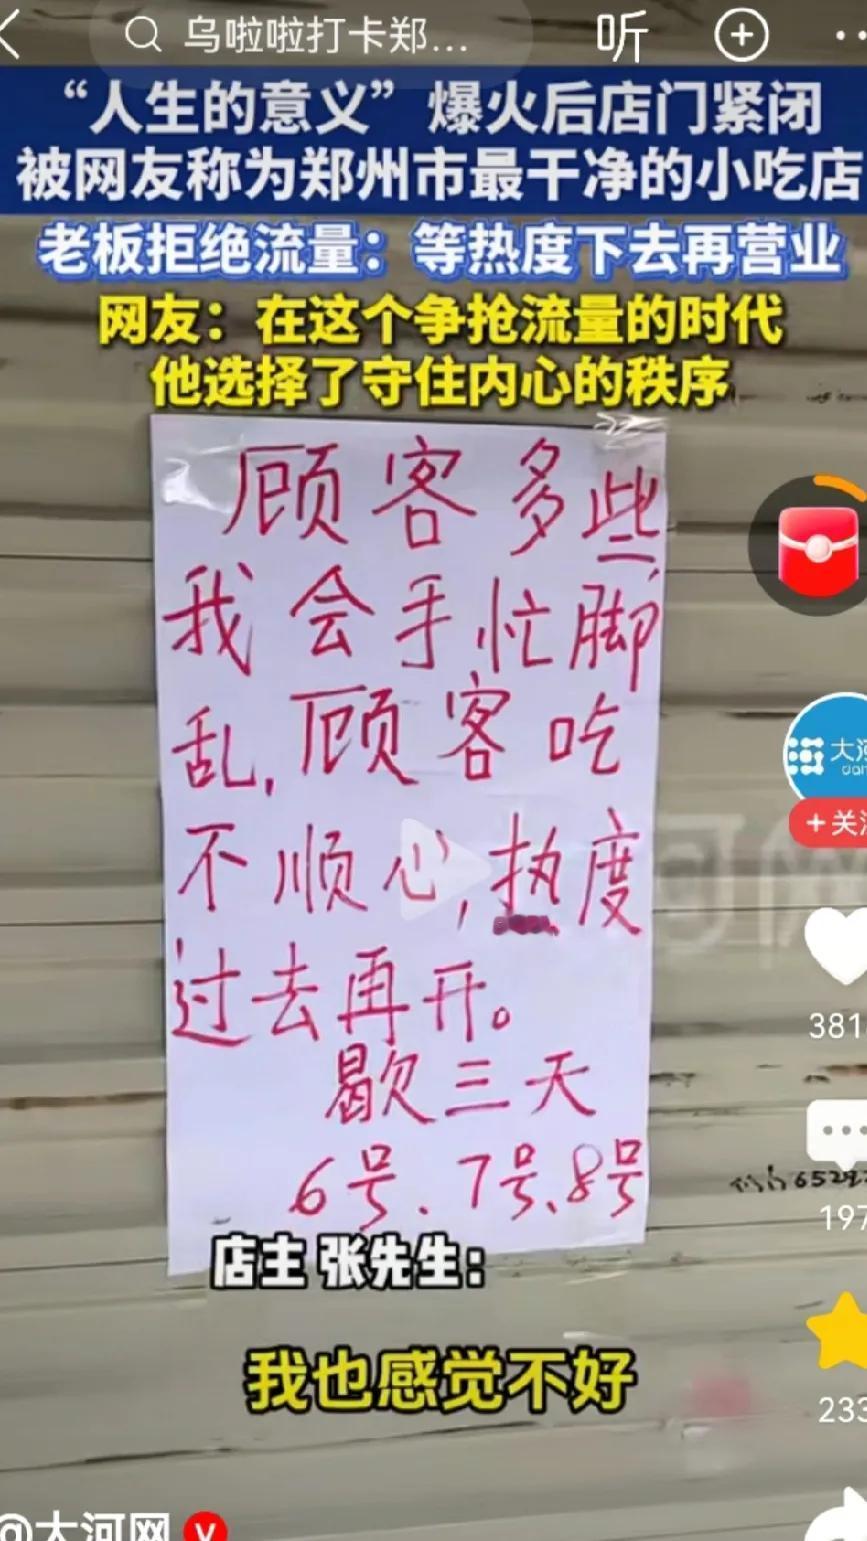 乌啦啦打卡郑...
听
“人生的意义”爆火后店门紧闭
被网友称为郑州市最干净的小吃店
老板拒绝流量：等热度下去再营业
网友：在这个争抢流量的时代
他选择了守住内心的秩序
顾客多些,
我会手忙脚
乱,顾客吃
不顺心,热度
过去再开。
歇三天
6号、7号、8号
大河
+关注
381
197
233
店主 张先生：
我也感觉不好
@大河网